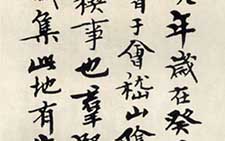 年歲在癸
于會稽山陰
禊事也羣
集此地有